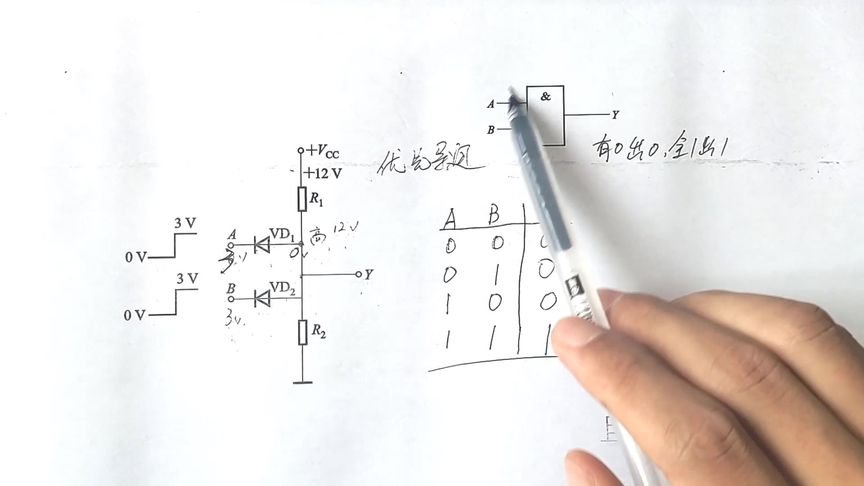 A
&
Y
B
有0出0,全1出1
+VCC
+12V
优先导通
R1
3V
A
VD1
高 12V
0V
0V
3V
B
VD2
Y
0V
3V.
R2
A B
0 0 0
0 1 0
1 0 0
1 1 1